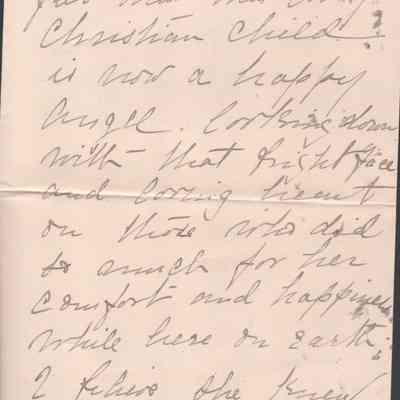 Christian child
is now a happy
angel. looking down
with that bright face
and loving heart
on those who did
so much for her
comfort and happiness
while here on earth.
I believe she knew